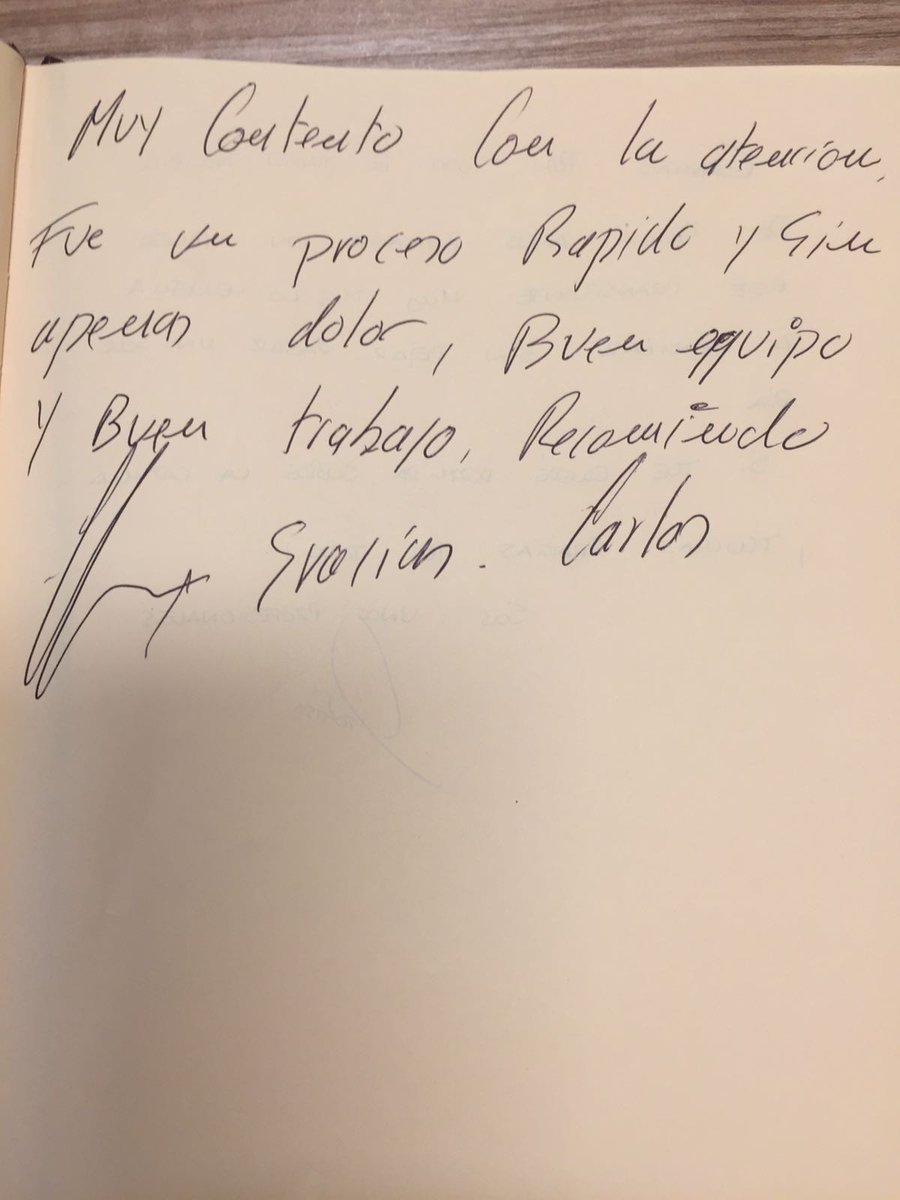 Muy Contento Con la atencion,
Fue un proceso Rapido y Sin
apenas dolor, Buen equipo
y Buen trabajo, Recomiendo
Gracias. Carlos